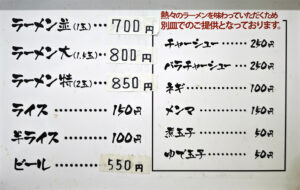 ラーメン並(1玉)… 700円
ラーメン大(1.5玉)… 800円
ラーメン特(2玉)… 850円
ライス………… 150円
半ライス……… 100円
ビール………… 550円
熱々のラーメンを味わっていただくため
別皿でのご提供となっております。
チャーシュー……… 250円
バラチャーシュー…… 250円
ネギ…………… 100円
メンマ………… 150円
煮玉子………… 50円
ゆで玉子……… 50円